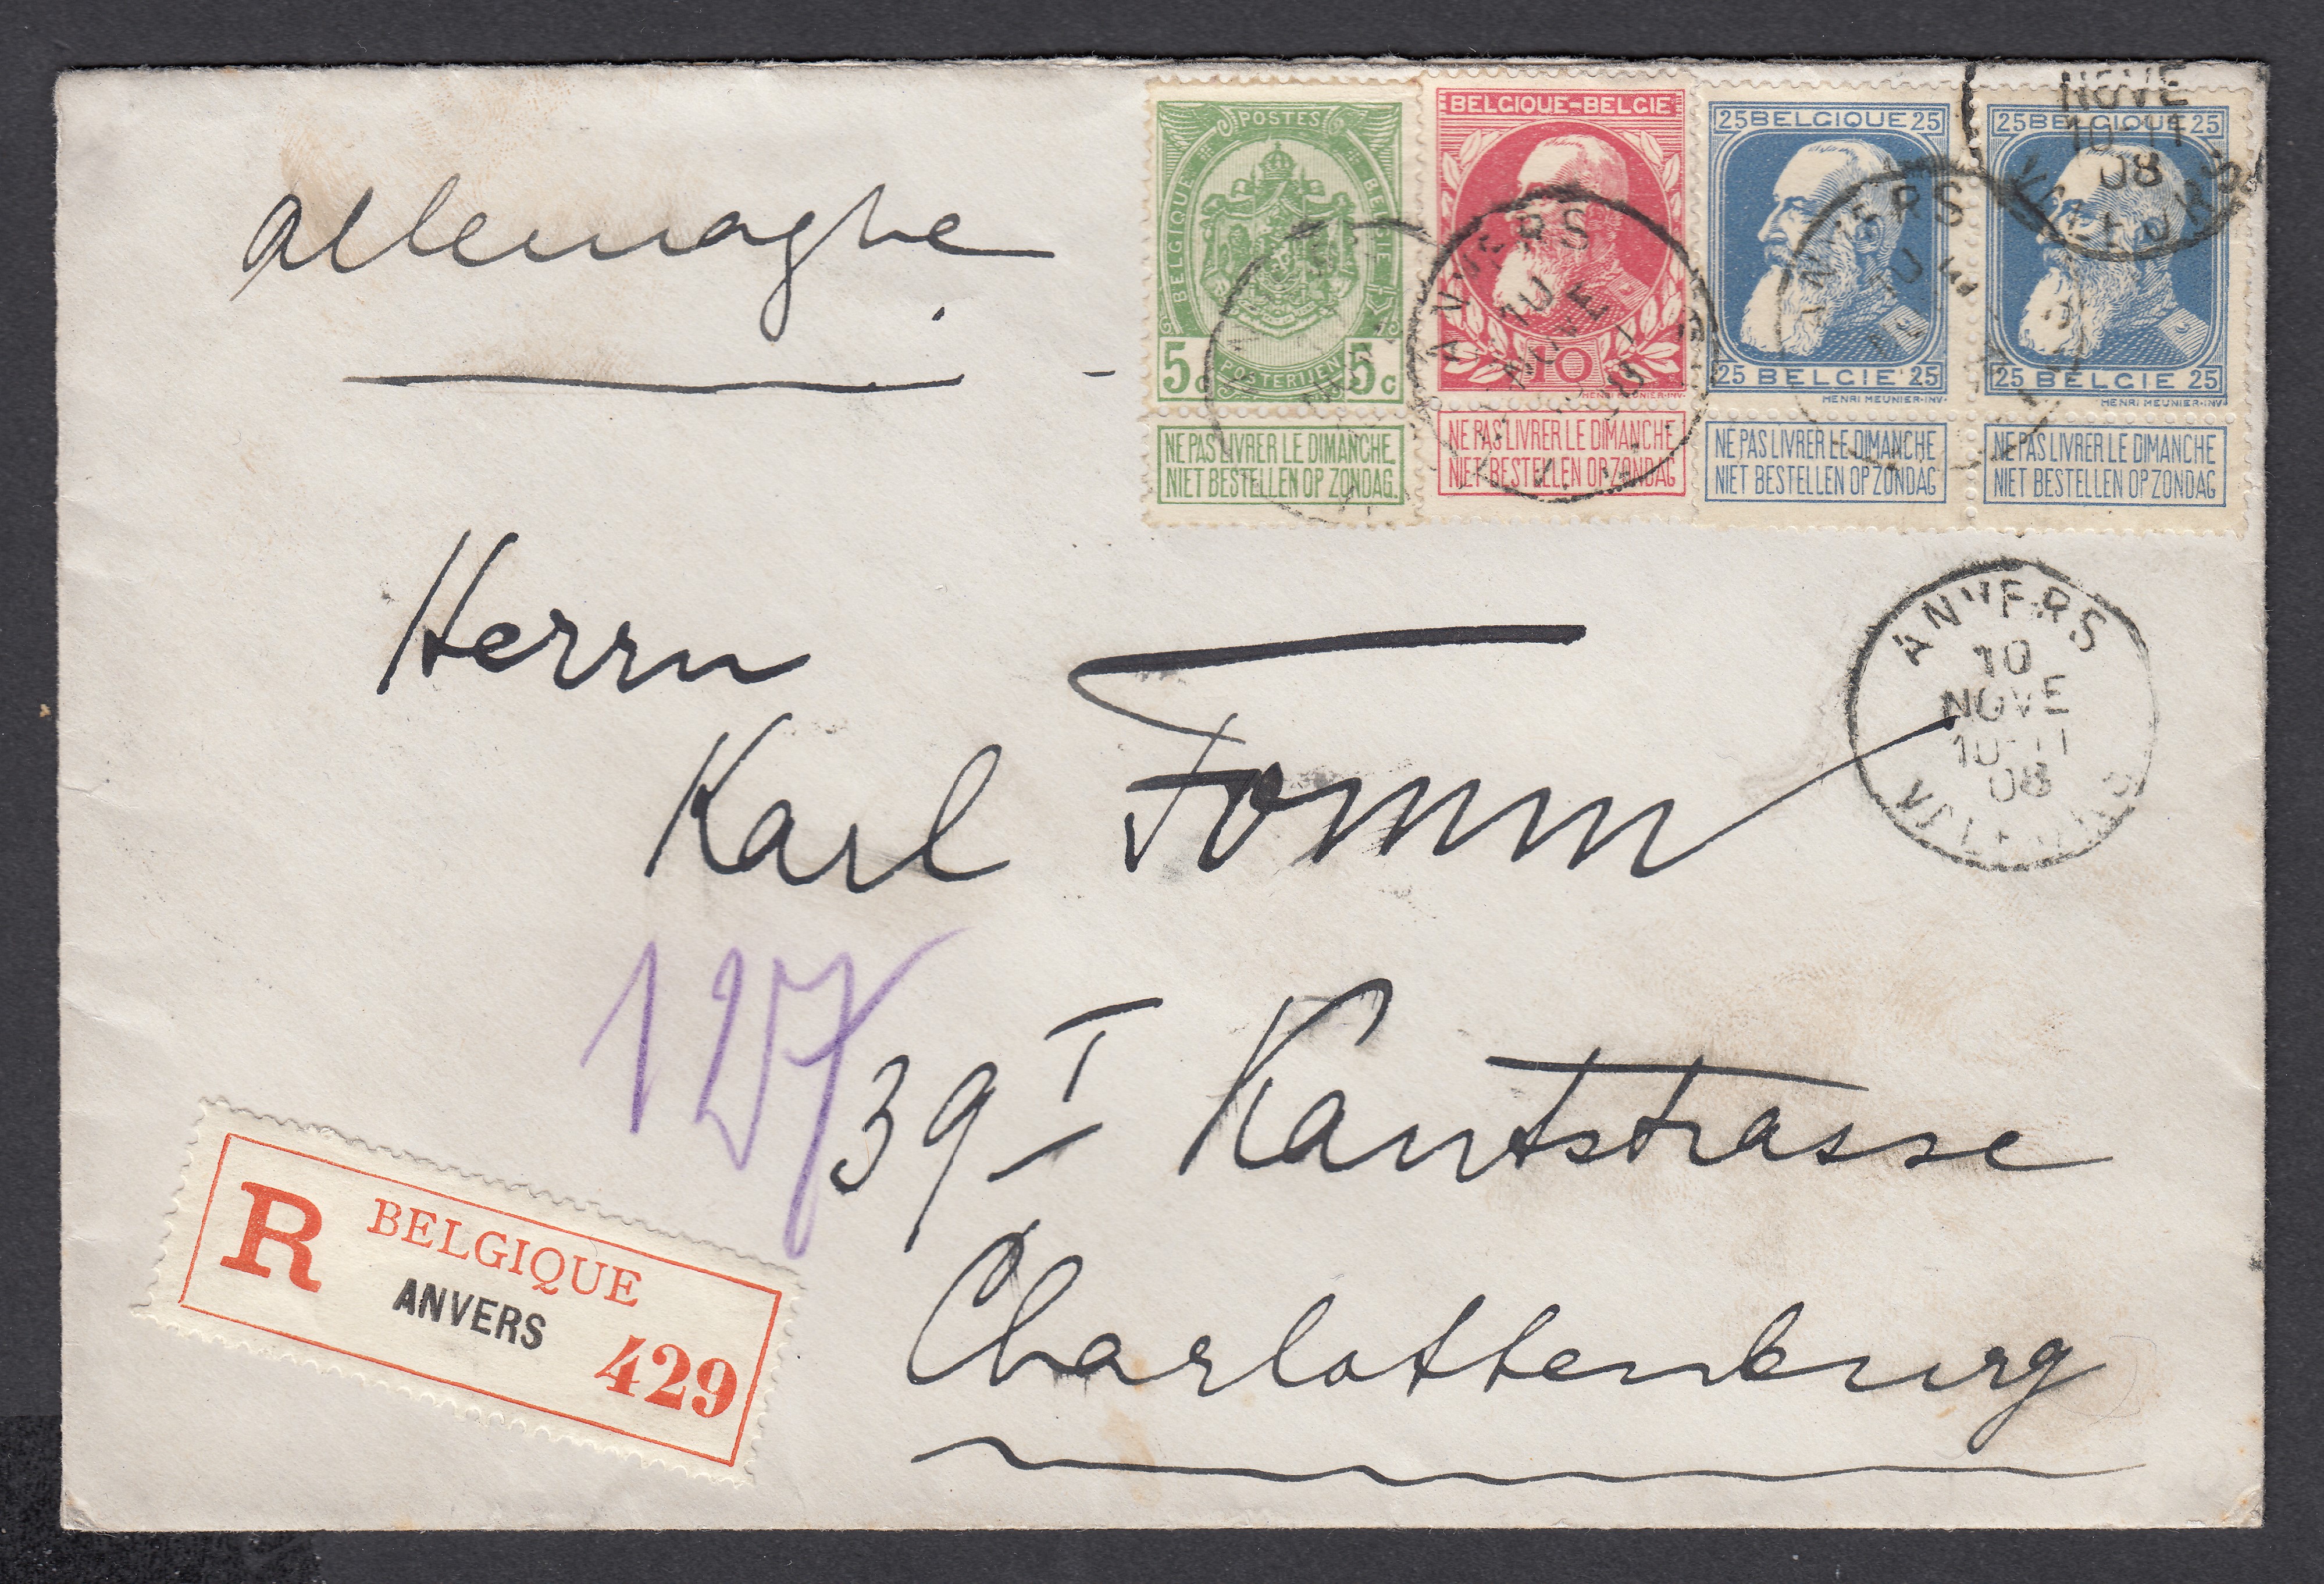 Allemagne
POSTES
BELGIQUE BELGIE
5c 5c
POSTERIJEN
NE PAS LIVRER LE DIMANCHE
NIET BESTELLEN OP ZONDAG.
BELGIQUE-BELGIE
10
HENRI MEUNIER·INV·
NE PAS LIVRER LE DIMANCHE
NIET BESTELLEN OP ZONDAG
25 BELGIQUE 25
25 BELGIE 25
HENRI MEUNIER·INV·
NE PAS LIVRER LE DIMANCHE
NIET BESTELLEN OP ZONDAG
25 BELGIQUE 25
25 BELGIE 25
HENRI MEUNIER·INV·
NE PAS LIVRER LE DIMANCHE
NIET BESTELLEN OP ZONDAG
ANVERS
10
NOVE
ANVERS
10
NOVE
10-11
08
VALEURS
ANVERS
10
NOVE
10-11
08
VALEURS
Herrn
Karl Fomm
127
39 I Kantstrasse
Charlottenburg
R BELGIQUE
ANVERS
429